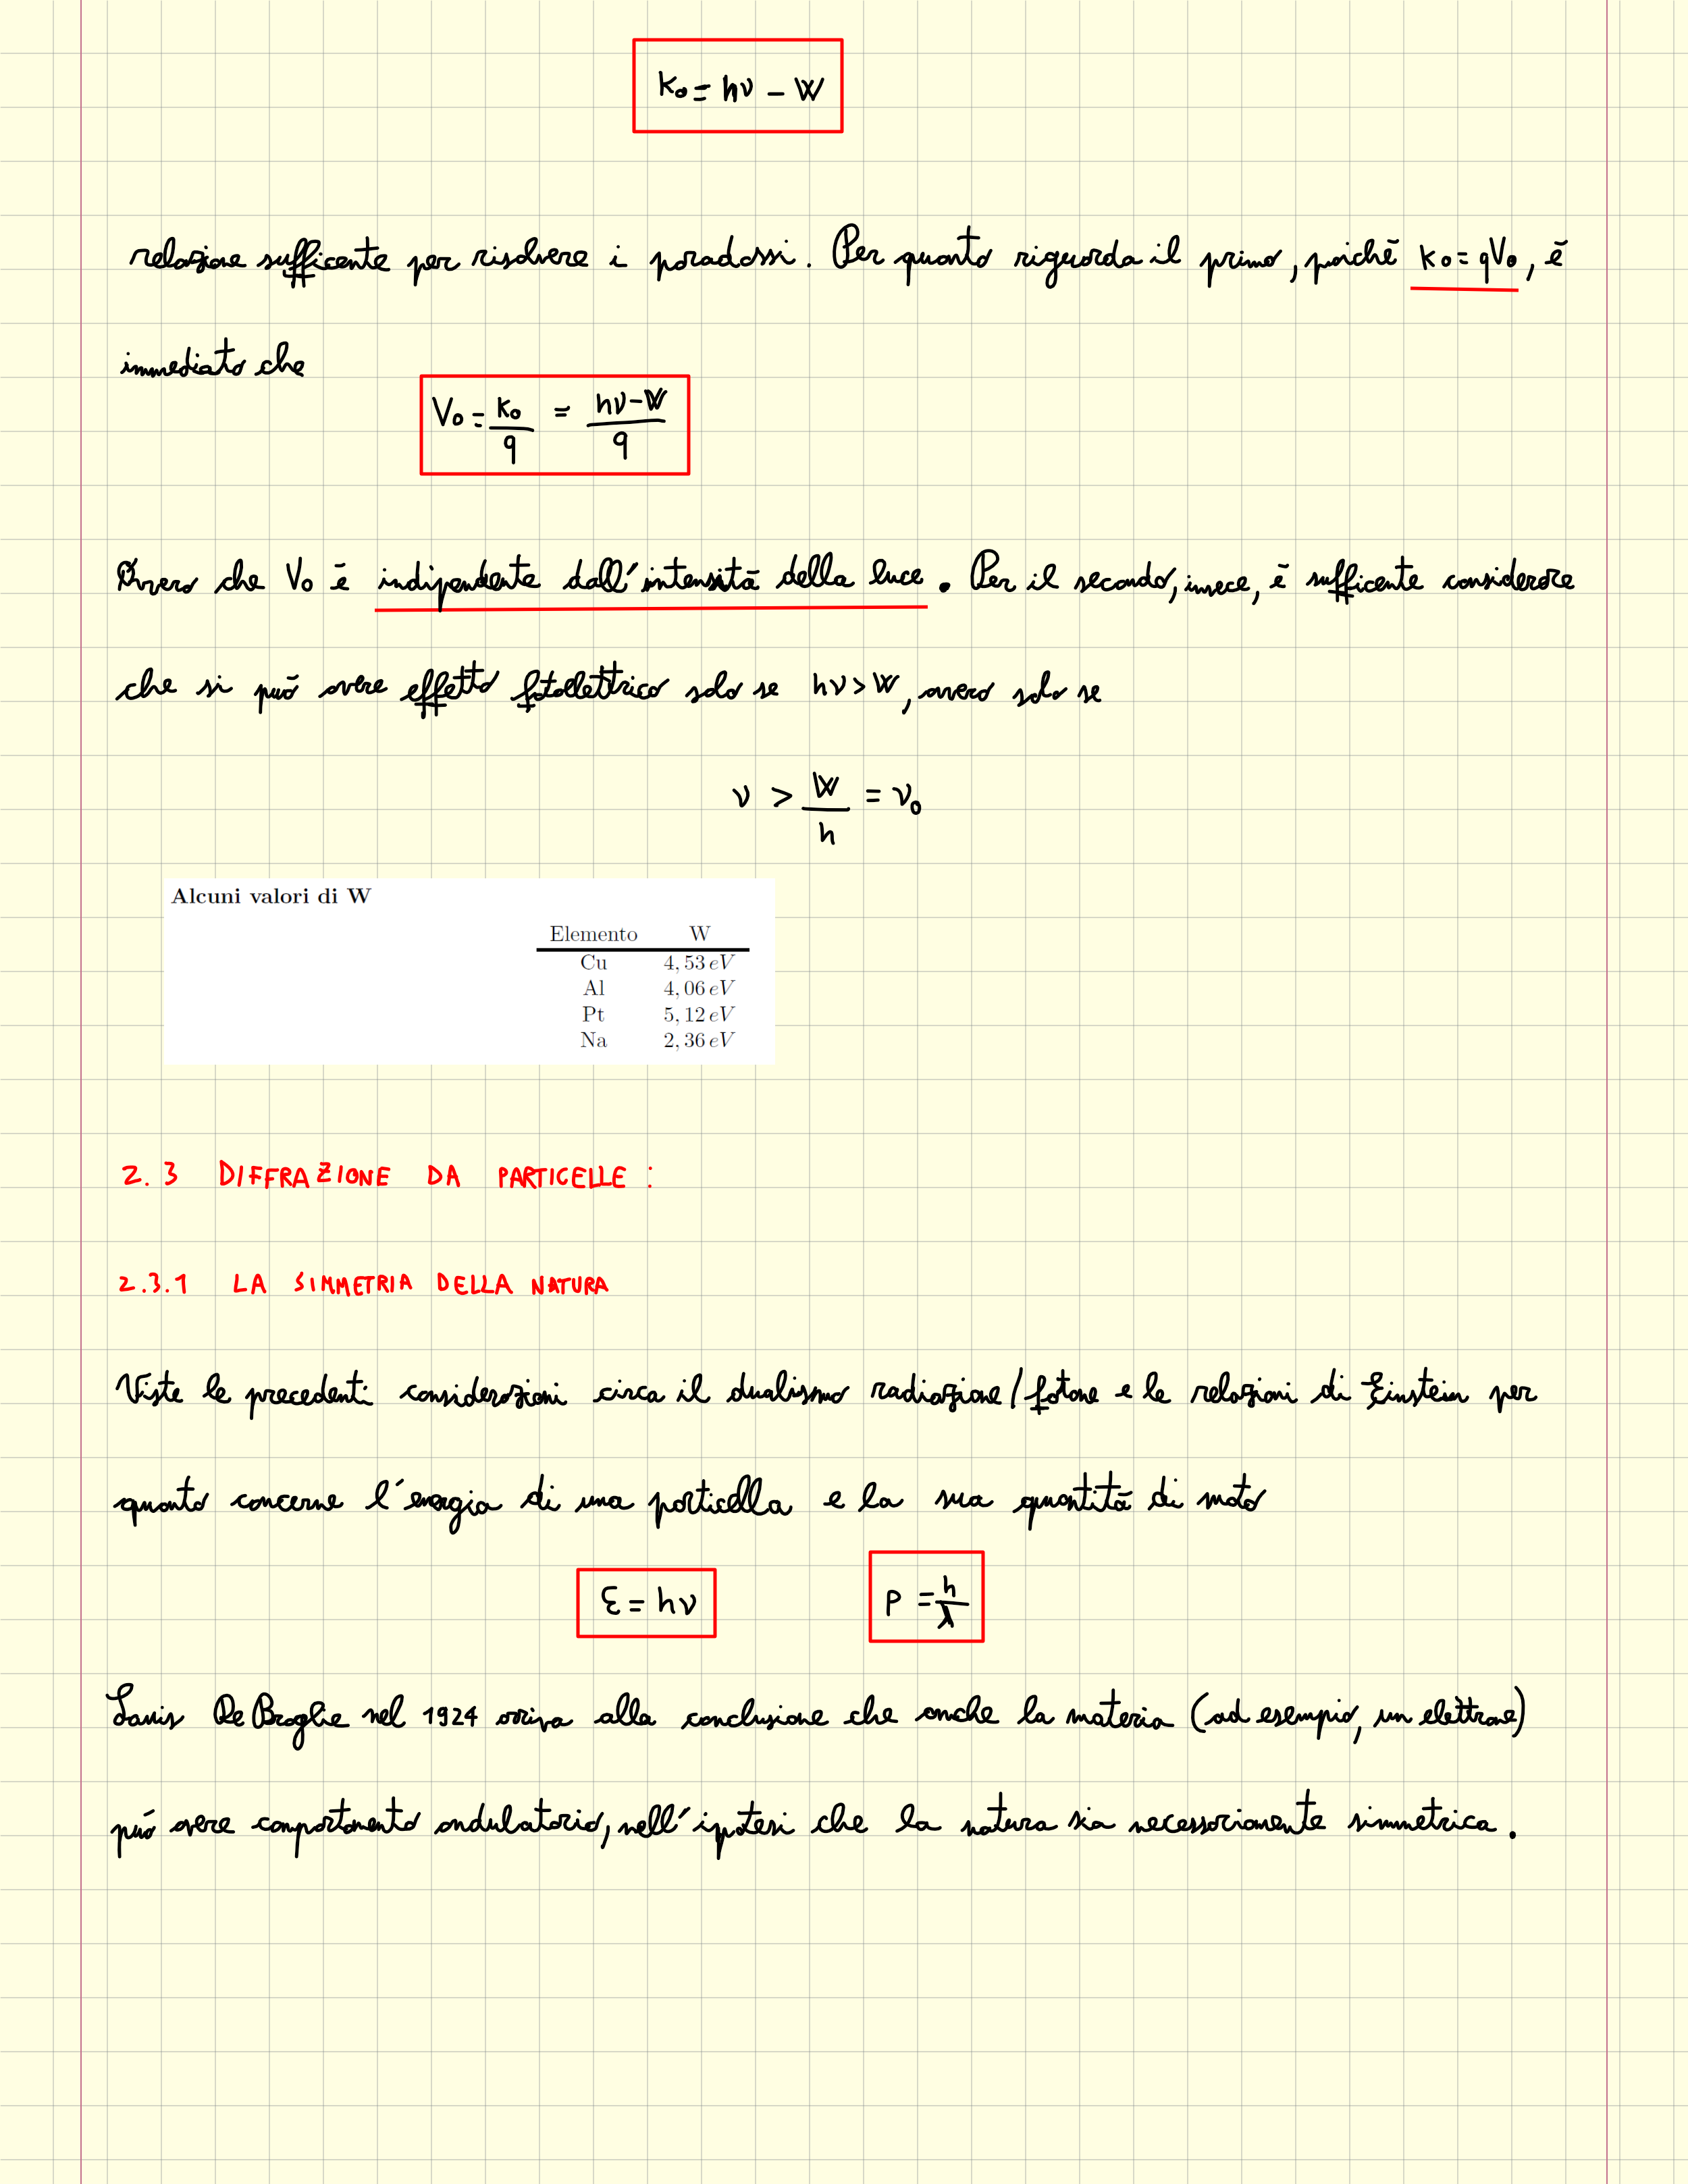 K₀ = hν − W
relazione sufficente per risolvere i paradossi. Per quanto riguarda il primo, poichè K₀ = qV₀, è
immediato che
V₀ = K₀/q = (hν − W)/q
Ovvero che V₀ è indipendente dall'intensità della luce. Per il secondo, invece, è sufficente considerare
che si può avere effetto fotoelettrico solo se hν > W, ovvero solo se
ν > W/h = ν₀
Alcuni valori di W
Elemento W
Cu 4,53 eV
Al 4,06 eV
Pt 5,12 eV
Na 2,36 eV
2.3 DIFFRAZIONE DA PARTICELLE:
2.3.1 LA SIMMETRIA DELLA NATURA
Viste le precedenti considerazioni circa il dualismo radiazione/fotone e le relazioni di Einstein per
quanto concerne l'energia di una particella e la sua quantità di moto
Ɛ = hν P = h/λ
Louis De Broglie nel 1924 arriva alla conclusione che anche la materia (ad esempio, un elettrone)
può avere comportamento ondulatorio, nell'ipotesi che la natura sia necessariamente simmetrica.